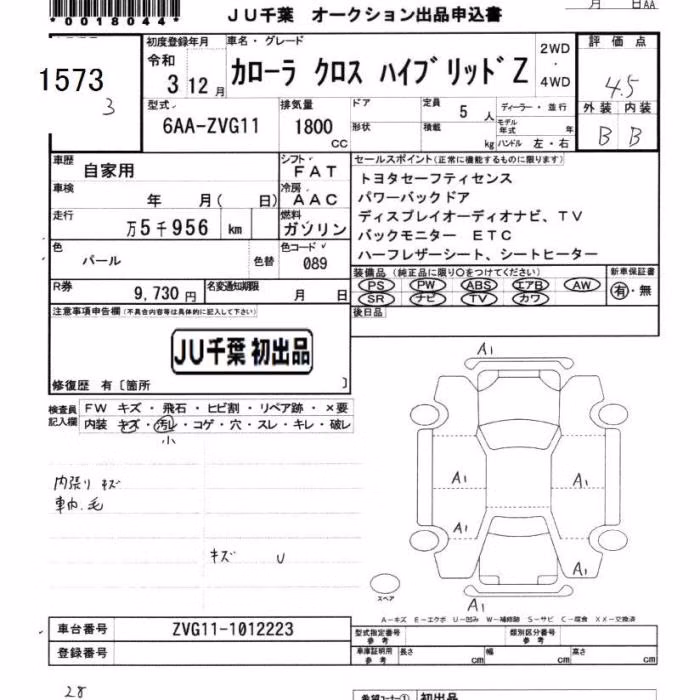 *0018044*
JU千葉 オークション出品申込書
月 日AA
1573
3
初度登録年月 車名・グレード
令和
3 12 月
カローラ クロス ハイブリッド Z
2WD
・
4WD
評価点
4.5
外装 内装
B B
型式
6AA-ZVG11
排気量
1800
CC
ドア
形状
定員
5 人
積載
kg
ディーラー・並行
モデル年式 年
ハンドル 左・右
車歴
自家用
シフト
F AT
車検
年 月( 日)
冷房
A AC
走行
万5千956 km
燃料
ガソリン
色
パール
色替
色コード
089
R券
9,730 円
名変通知期限
月 日
セールスポイント(正常に機能するものに限ります)
トヨタセーフティセンス
パワーバックドア
ディスプレイオーディオナビ、TV
バックモニター ETC
ハーフレザーシート、シートヒーター
装備品 (純正品に限り○をつけてください)
PS PW ABS エアB AW
SR ナビ TV カワ
新車保証書
有・無
後日品
注意事項申告欄(不具合内容等は具体的に記入して下さい)
JU千葉 初出品
修復歴 有〔箇所 〕
検査員
記入欄
FW キズ・飛石・ヒビ割・リペア跡・×要
内装 キズ・汚レ・コゲ・穴・スレ・キレ・破レ
小
内張り キズ
車内.毛
キズ U
A1
A1
A1
A1
A1
A1
A1
スペア
A-キズ E-エクボ U-凹み W-補修跡 S-サビ C-腐食 XX-交換済
車台番号
ZVG11-1012223
登録番号
型式指定番号
参考
類別区分番号
参考
車庫証明用
参考
長さ cm
幅 cm
高さ cm
28
希望コーナー① 初出品